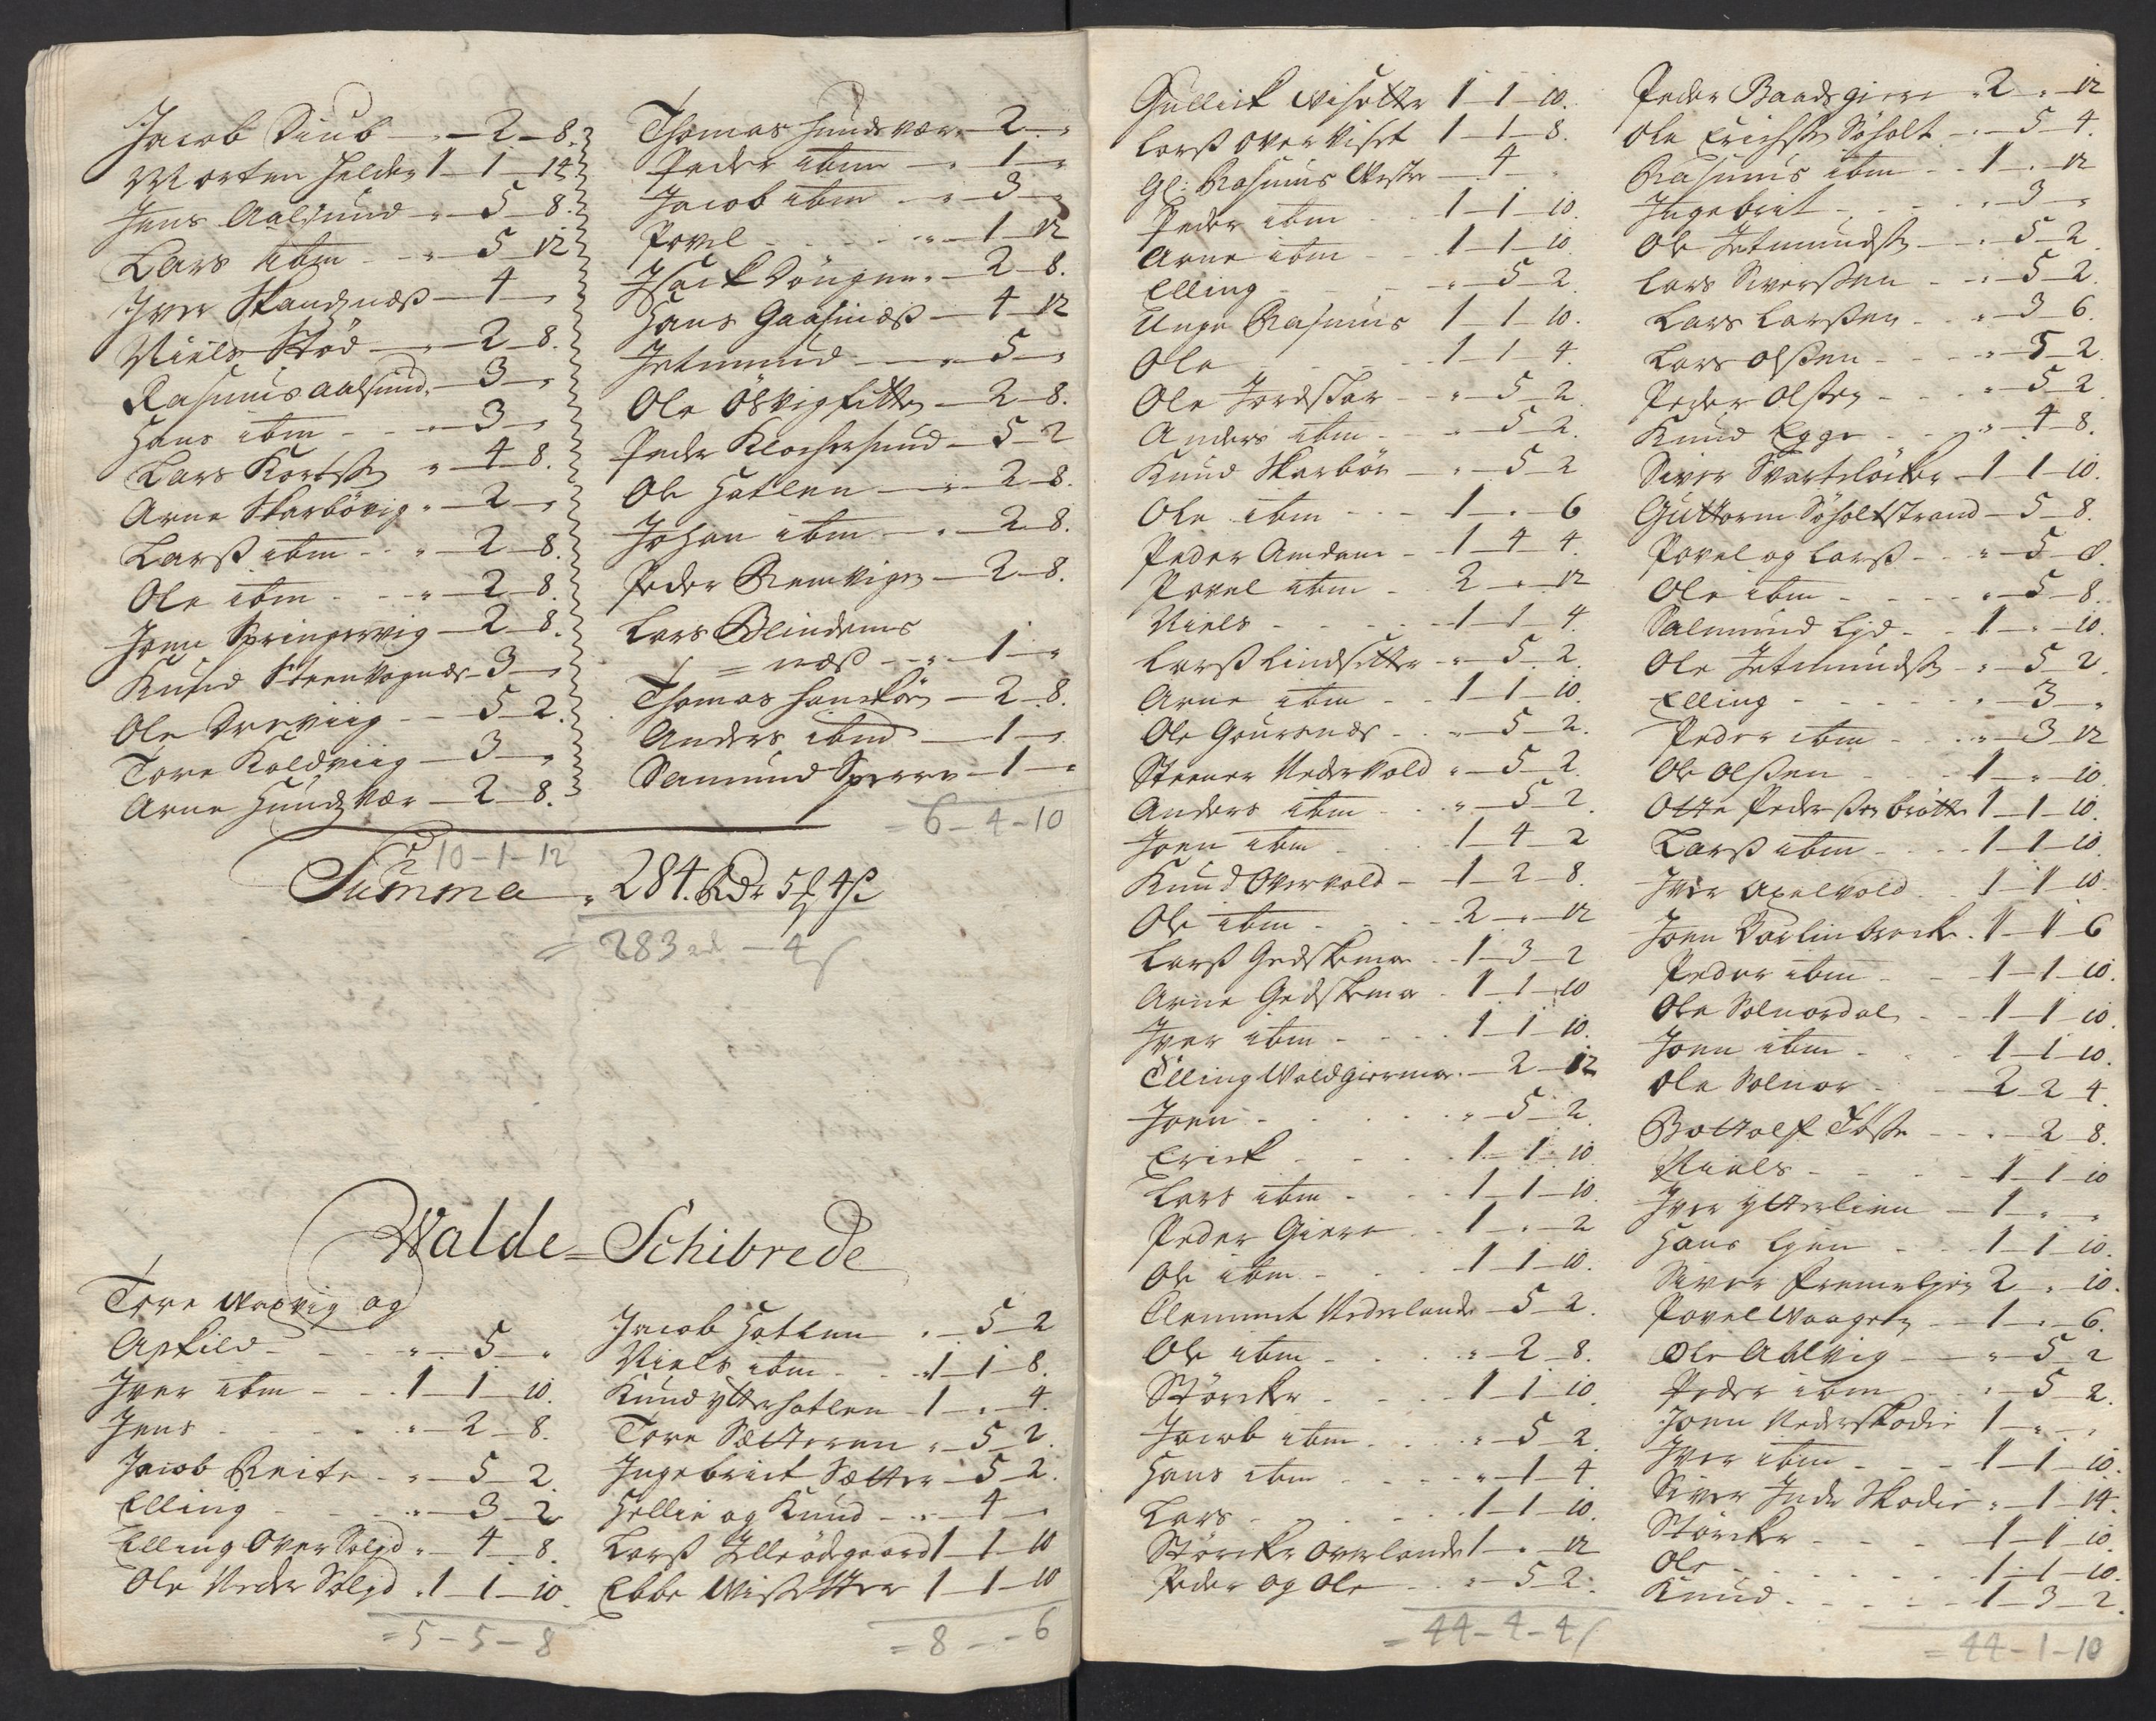 Jacob Siub - " - 2 - 8.
Morten Helden 1 - 1 - 14
Jens Aalsund - " - 5 - 8.
Lars ibm - " - 5 - 12
Iver Skaudznæß - 4 - "
Niels Stöd - " - 2 - 8.
Rasmus Aalsund - 3 - "
Hans ibm - " - 3 - "
Lars Kortß " - 4 - 8.
Arne Skarbövig " - 2 - "
Larß ibm - " - 2 - 8.
Ole ibm - " - 2 - 8.
Jonn Springervig - 2 - 8.
Knud Steenvognæs - 3 - "
Ole Dreviig - 5 - 2.
Tore Koldviig - 3 - "
Arne Hundzvær - 2 - 8.
10 - 1 - 12
Thomas Hundzvær - 2 - "
Peder ibm - " - 1 - "
Jacob ibm - " - 3 - "
Povel - " - 1 - 12
Isack Döngen " - 2 - 8.
Hans Gaasnæß - 4 - 12
Jetmund - " - 5 - "
Ole Ölvigfitte - 2 - 8.
Peder Klochersund - 5 - 2
Ole Hatlen - " - 2 - 8.
Johan ibm - " - 2 - 8.
Peder Remvigen - 2 - 8.
Lars Blindems
= næß - " - 1 - "
Thomas Hanckön - 2 - 8.
Anders ibmd - 1 - "
Samund Sperre - 1 - "
= 6 - 4 - 10
Summa " 284. Rdr 5 4 ß
= 283 rd - 4
Walde = Schibrede
Tore Waxvig og
Askild - " - 5 - "
Iver ibm - 1 - 1 - 10.
Jens - " - 2 - 8.
Jacob Reite - " - 5 - 2.
Elling - " - 3 - 2
Elling Over Soljd " - 4 - 8.
Ole Neder Solyd " 1 - 1 - 10.
= 5 - 5 - 8
Jacob Hatlen " - 5 - 2
Niels ibm - 1 - 1 - 8.
Knud ytterhatlen - 1 - " - 4.
Tore Sætteren " - 5 - 2.
Ingebrict Sætter - 5 - 2.
Hellie og Knud - " - 4 - "
Larß Illeödegaard 1 - 1 - 10
Ebbe Wißetter 1 - 1 - 10
= 8 - - 6
Gullick Wisetter 1 - 1 - 10.
Larß over Viset 1 - 1 - 8.
Gl: Rasmus Vestre - 4 - "
Peder ibm - 1 - 1 - 10.
Arne ibm - 1 - 1 - 10.
Elling - " - 5 - 2.
Unge Rasmus 1 - 1 - 10.
Ole - 1 - 1 - 4.
Ole Jordskar - " - 5 - 2.
Anders ibm - " - 5 - 2.
Knud Skarbön - " - 5 - 2
Ole ibm - 1 - " - 6
Peder Amdam - 1 - 4 - 4.
Povel ibm - 2 - " - 12
Niels - 1 - 1 - 4.
Larß Lindsetter " - 5 - 2.
Arne ibm - 1 - 1 - 10.
Ole Gouvsnæs - " - 5 - 2.
Steener Nedervold " - 5 - 2.
Anders ibm - " - 5 - 2.
Joen ibm - 1 - 4 - 2
Knud Overvold - 1 - 2 - 8.
Ole ibm - 2 - " - 12
Larß Gedskemoe - 1 - 3 - 2
Arne Gedskemoe - 1 - 1 - 10
Iver ibm - 1 - 1 - 10.
Elling Woldgiermoe - 2 - 12
Joen - " - 5 - 2.
Erick - 1 - 1 - 10
Lars ibm - 1 - 1 - 10.
Peder Giere - 1 - " - 2
Ole ibm - 1 - 1 - 10.
Clemmet Nederlande - 5 - 2.
Ole ibm - " - 2 - 8.
Störcker - 1 - 1 - 10
Jacob ibm - " - 5 - 2.
Hans ibm - " - 1 - 4
Lars - 1 - 1 - 10.
Störcker Overlande 1 - " - 12
Peder og Ole - " - 5 - 2.
= 44 - 4 - 4
Peder Baadsgiere - 2 - " - 12
Ole Erichß Söholt - " - 5 - 4.
Rasmus ibm - 1 - " - 12
Ingebrit - " - 3 - "
Ole Jetmundß - " - 5 - 2.
Lars Siverßen - " - 5 - 2.
Lars Larßen - " - 3 - 6.
Lars Olßen - " - 5 - 2.
Peder Olßen - " - 5 - 2
Knud Egge - " - 4 - 8.
Siver Svartelöcker - 1 - 1 - 10.
Guttorm Söholtstrand - 5 - 8.
Povel og Larß - " - 5 - 8.
Ole ibm - " - 5 - 8.
Salmund Lyd - 1 - " - 10.
Ole Jetmundß - " - 5 - 2.
Elling - " - 3 - "
Peder ibm - " - 3 - 12
Ole Olßen - 1 - " - 10.
Otte Pederßen Bratte 1 - 1 - 10.
Larß ibm - 1 - 1 - 10
Iver Apelvold - 1 - 1 - 10.
Joen Vorlinbrecke - 1 - 1 - 6
Peder ibm - 1 - 1 - 10.
Ole Solnordal - 1 - 1 - 10.
Joen ibm - 1 - 1 - 10.
Ole Solnor - 2 - 2 - 4.
Bottolf Föße - " - 2 - 8.
Niels - 1 - 1 - 10
Iver ytterlien - 1 - " - "
Hans Lyen - 1 - 1 - 10.
Siver Fremelyen 2 - " - 10.
Povel Waagen - 1 - " - 6.
Ole Aalvig - " - 5 - 2
Peder ibm - " - 5 - 2.
Joen Nederskodie 1 - " - "
Iver ibm - 1 - 1 - 10.
Siver Inde Skodie " - 1 - 14.
Störcker - 1 - 1 - 10.
Ole - 1 - 1 - 10.
Knud - 1 - 3 - 2.
= 44 - 1 - 10